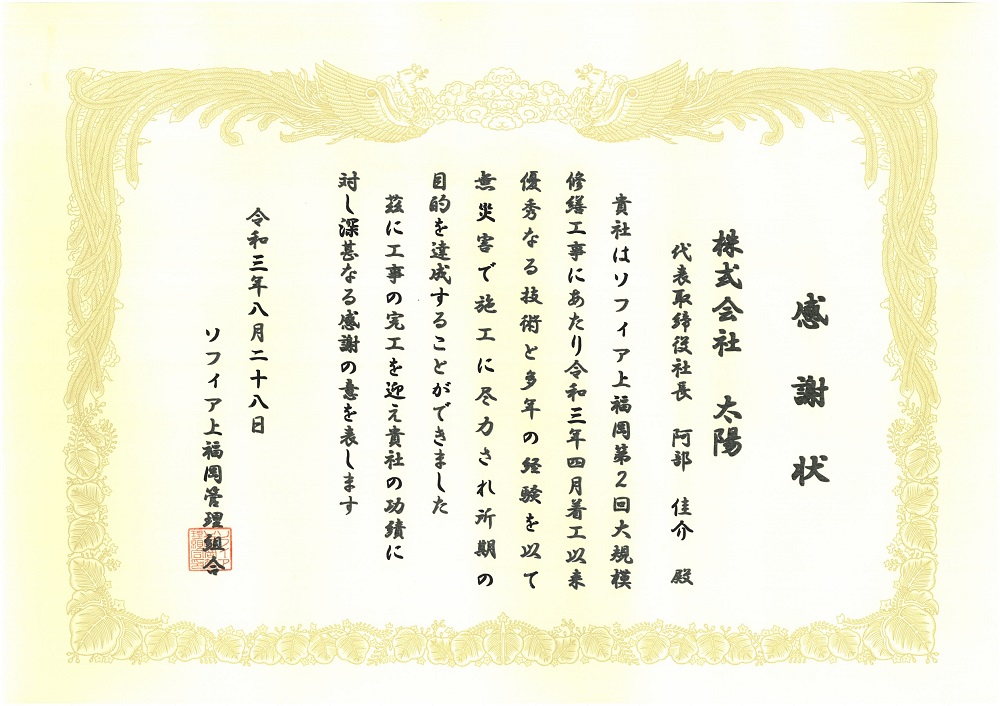 感謝状
株式会社 太陽
代表取締役社長 阿部 佳介 殿
貴社はソフィア上福岡第2回大規模
修繕工事にあたり令和三年四月着工以来
優秀なる技術と多年の経験を以て
無災害で施工に尽力され所期の
目的を達成することができました
茲に工事の完工を迎え貴社の功績に
対し深甚なる感謝の意を表します
令和三年八月二十八日
ソフィア上福岡管理組合